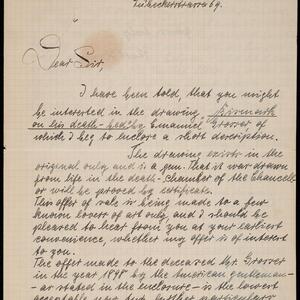 Lübeckerstrasse 69.
Dear Sir,
I have been told, that you might
be interested in the drawing "Bismarck
on his death-bed" by Emanuel Grosser, of
which I beg to enclose a short description.
The drawing exists in the
original only and is a gem. That it was drawn
from life in the death-chamber of the Chancellor
will be proved by certificate.
This offer of sale is being made to a few
known lovers of art only, and I should be
pleased to hear from you at your earliest
convenience, whether my offer is of interest
to you.
The offer made to the deceased Mr. Grosser
in the year 1898 by the American gentleman -
as stated in the enclosure - is the lowest
acceptable